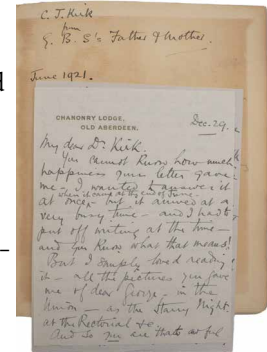 C. J. Kirk
from
G. B. S's Father & Mother.
June 1921.
CHANONRY LODGE,
OLD ABERDEEN.
Dec. 29.
My dear Dr. Kirk.
You cannot know how much
happiness your letter gave
me. I wanted to answer it
at once, but it arrived at a
very busy time – and I had to
put off writing at the time –
and you know what that means!
But I simply loved reading
it – all the pictures you gave
me of dear George – in the
Union – as the Starry Night,
at the Rectorial &c.
And so you see that